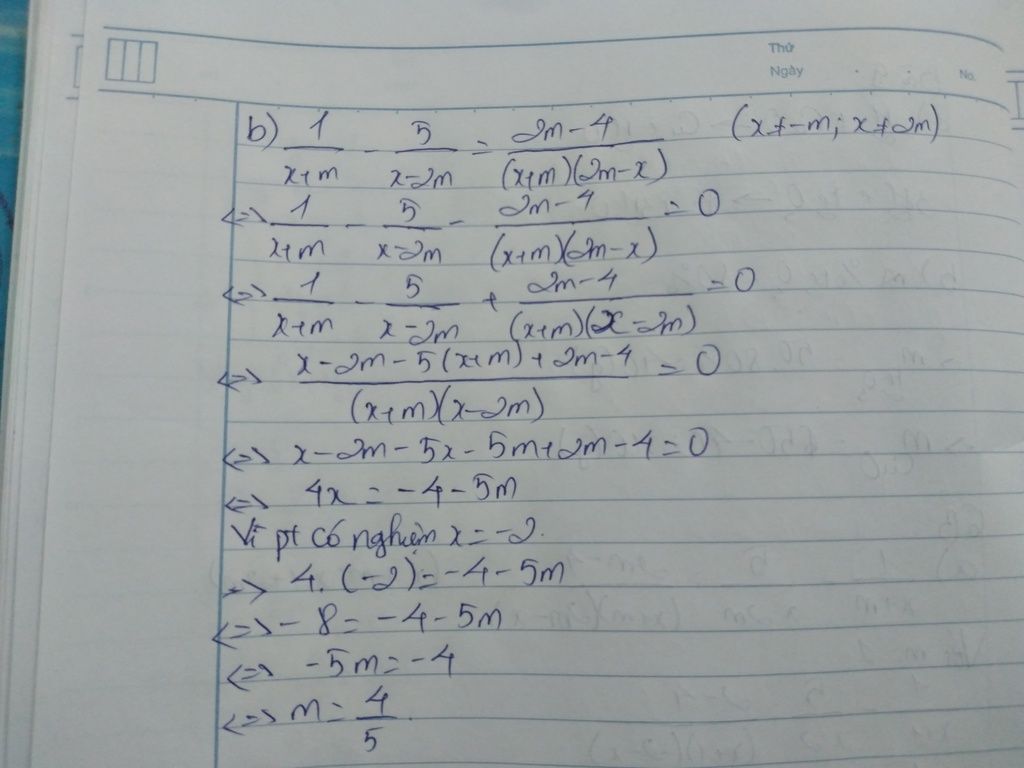 Thứ
Ngày No.
b) 1/(x+m) - 5/(x-2m) = (2m-4)/((x+m)(2m-x)) (x≠-m; x≠2m)
<=> 1/(x+m) - 5/(x-2m) - (2m-4)/((x+m)(2m-x)) = 0
<=> 1/(x+m) - 5/(x-2m) + (2m-4)/((x+m)(x-2m)) = 0
<=> (x-2m-5(x+m)+2m-4)/((x+m)(x-2m)) = 0
<=> x-2m-5x-5m+2m-4=0
<=> 4x = -4-5m
Vì pt có nghiệm x=-2.
=> 4.(-2)=-4-5m
<=> -8=-4-5m
<=> -5m=-4
<=> m=4/5.